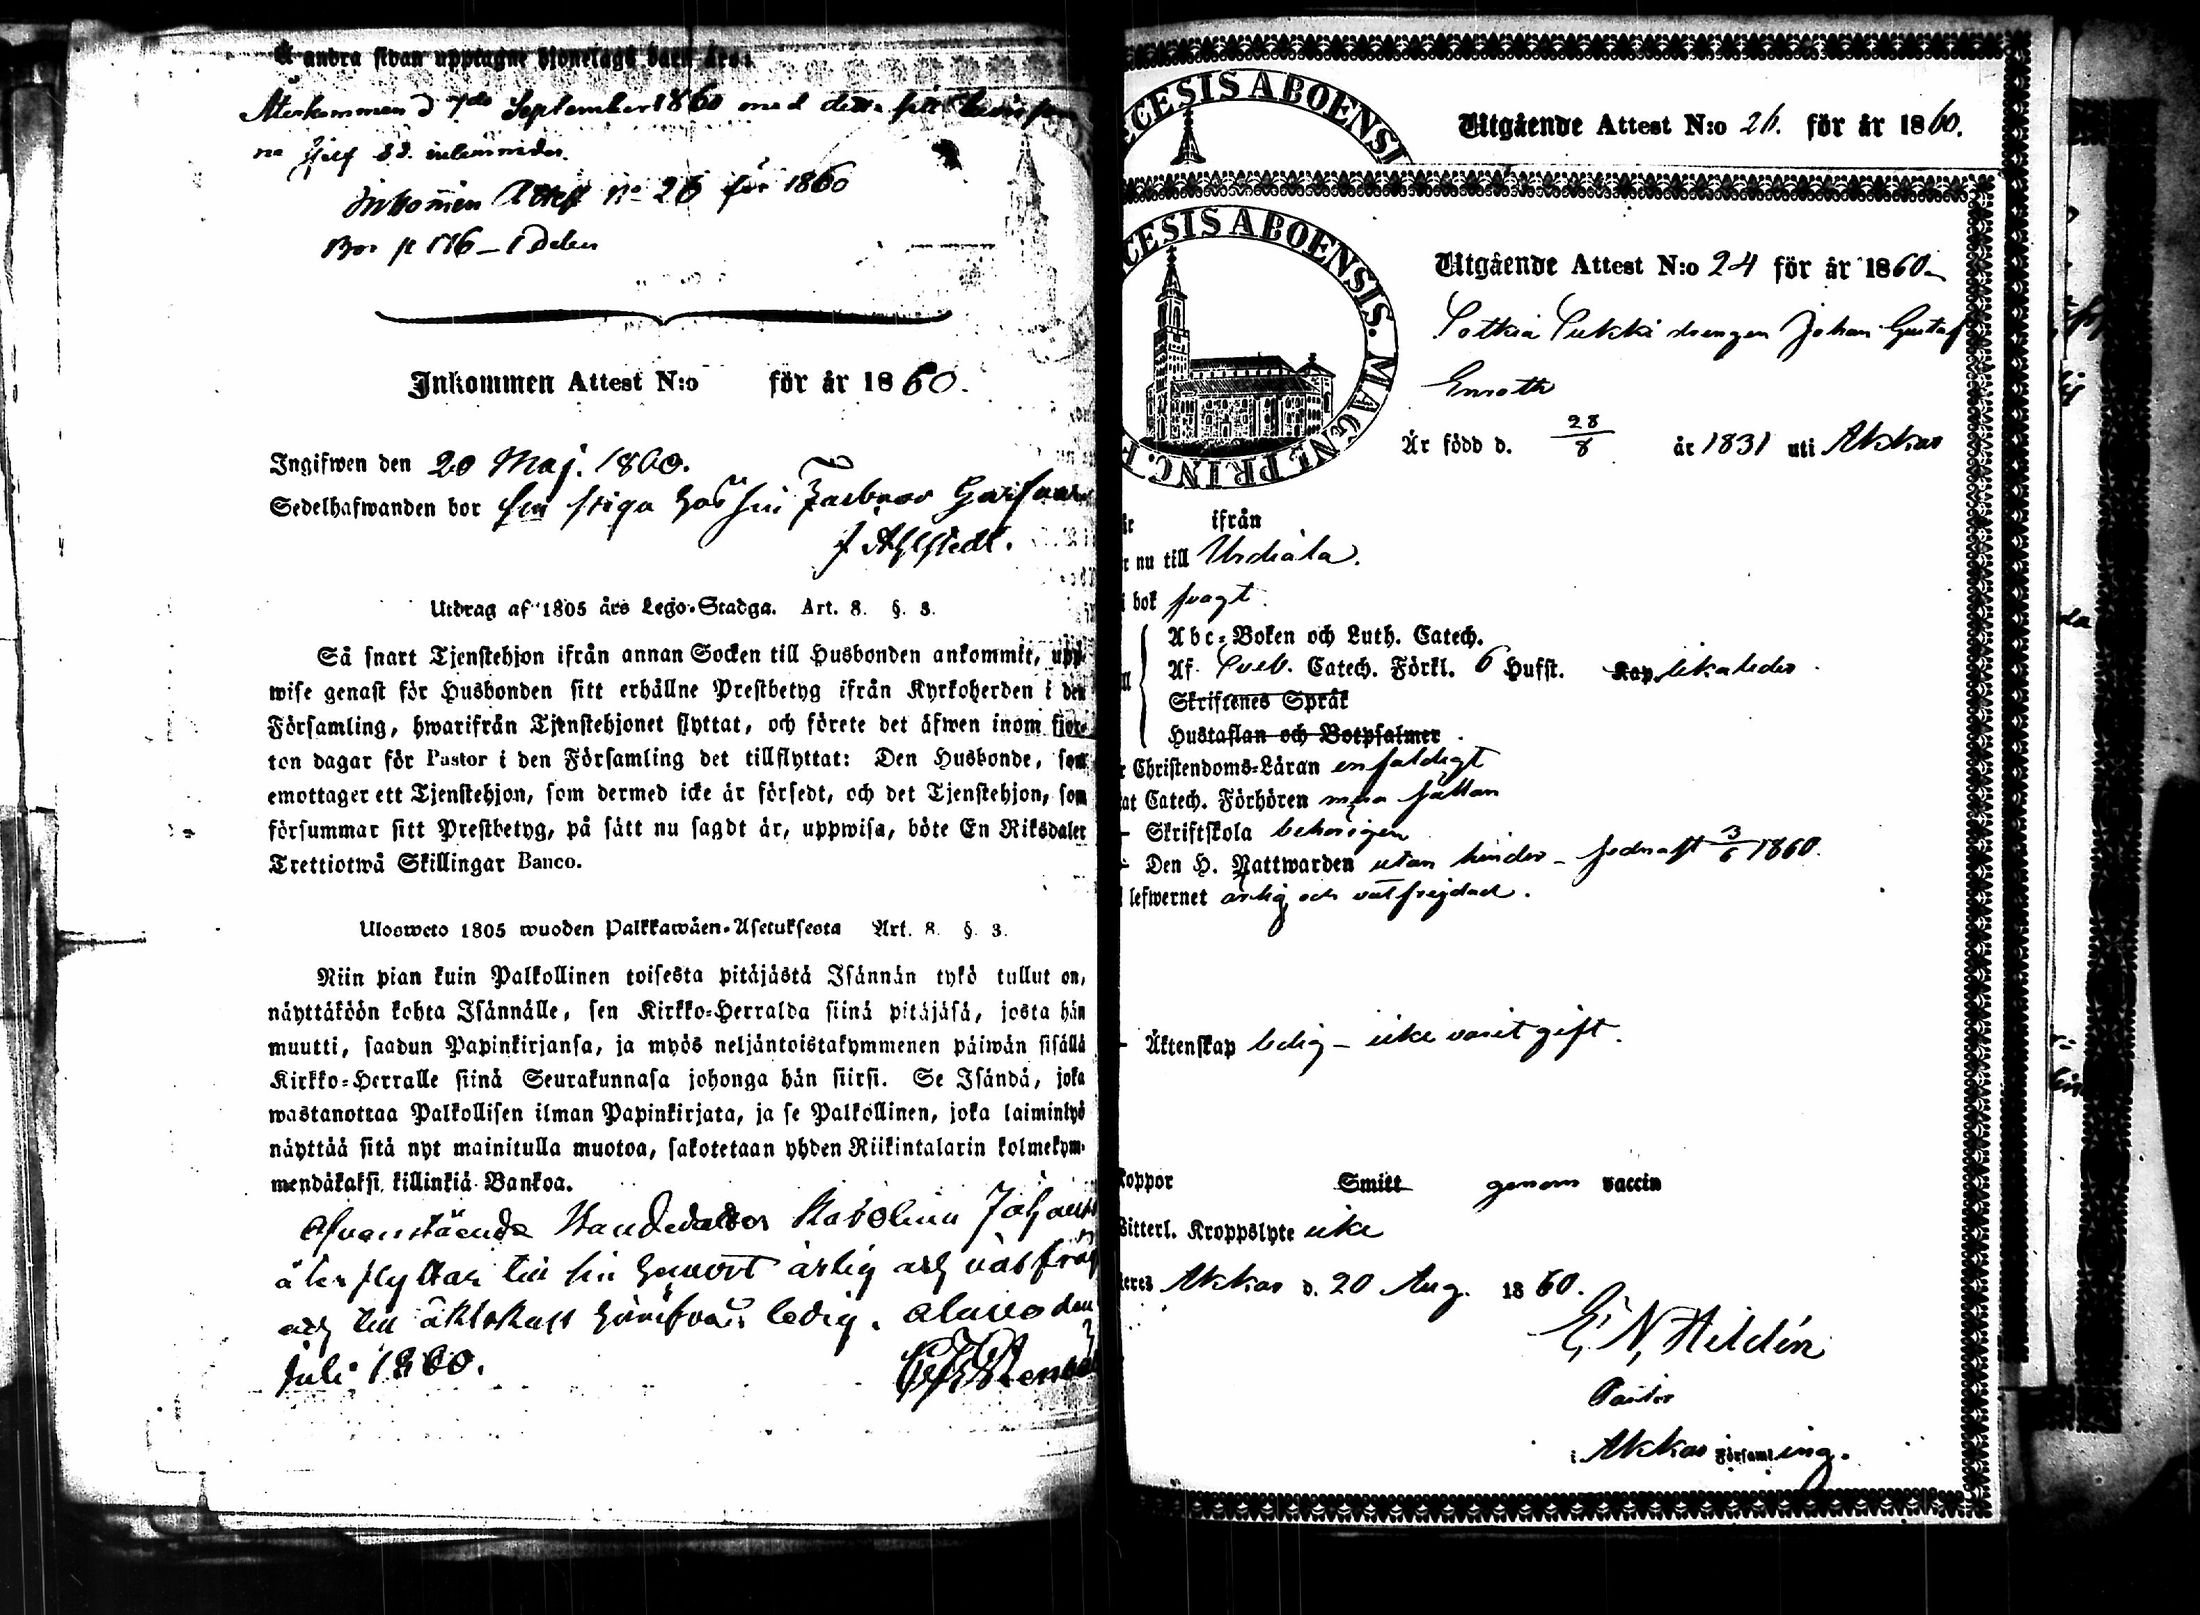 Å andra sidan upptagne hjonelags barn äro:
Återkommen d 7de September 1860 med detta
Inkommen Attest No 26 för 1860
Bor p 176 – 1 Delen
Inkommen Attest N:o för år 1860.
Ingifwen den 20 Maj. 1860.
Sedelhafwanden bor hos sin
J Ahlstedt.
Utdrag af 1805 års Lego-Stadga. Art. 8. §. 3.
Så snart Tjenstehjon ifrån annan Socken till Husbonden ankommit, upp-
wise genast för Husbonden sitt erhållne Prestbetyg ifrån Kyrkoherden i den
Församling, hwarifrån Tjenstehjonet flyttat, och förete det äfwen inom fjor-
ton dagar för Pastor i den Församling det tillflyttat: Den Husbonde, som
emottager ett Tjenstehjon, som dermed icke är försedt, och det Tjenstehjon, som
försummar sitt Prestbetyg, på sätt nu sagdt är, uppwisa, böte En Riksdaler
Trettiotwå Skillingar Banco.
Ulosweto 1805 wuoden Palkkawäen-Asetuksesta Art. 8. §. 3.
Niin pian kuin Palkollinen toisesta pitäjästä Isännän tykö tullut on,
näyttäköön kohta Isännälle, sen Kirkko-Herralda siinä pitäjäsä, josta hän
muutti, saadun Papinkirjansa, ja myös neljäntoistakymmenen päiwän sisällä
Kirkko-Herralle siinä Seurakunnasa johonga hän siirsi. Se Isändä, joka
wastanottaa Palkollisen ilman Papinkirjata, ja se Palkollinen, joka laiminlyö
näyttää sitä nyt mainitulla muotoa, sakotetaan yhden Riikintalarin kolmekym-
mendäkaksi killinkiä Bankoa.
Ofvanstående Karolina Johans
återflyttar till sin hemort ärlig och välfräj
och till äktskap härifrån ledig. Alavo den
Juli 1860.
CESIS ABOENSI
Utgående Attest N:o 26. för år 1860.
CESIS ABOENSIS. MAGNI PRINC. F
Utgående Attest N:o 24 för år 1860
Sotkia Sukki drengen Johan Gustaf
Enroth
Är född d. 28/8 år 1831 uti Akkas
ifrån
nu till Urdiala.
i bok svagt.
Abc-Boken och Luth. Catech.
Af Sveb. Catech. Förkl. 6 Hufst. Kap. likaledes
Skriftenes Språk
Hustaflan och Botpsalmer
Christendoms-Läran enfaldigt
Catech. Förhören sällan
Skriftskola behörigen
Den H. Nattwarden utan hinder – sednast 3/6 1860.
lefwernet ärlig och välfrejdad.
Äktenskap ledig – icke varit gift.
koppor Smitt genom vaccin
Witterl. Kroppslyte icke
Akkas d. 20 Aug. 1860.
E, N, Hildén
Pastor
i Akkas Församling.